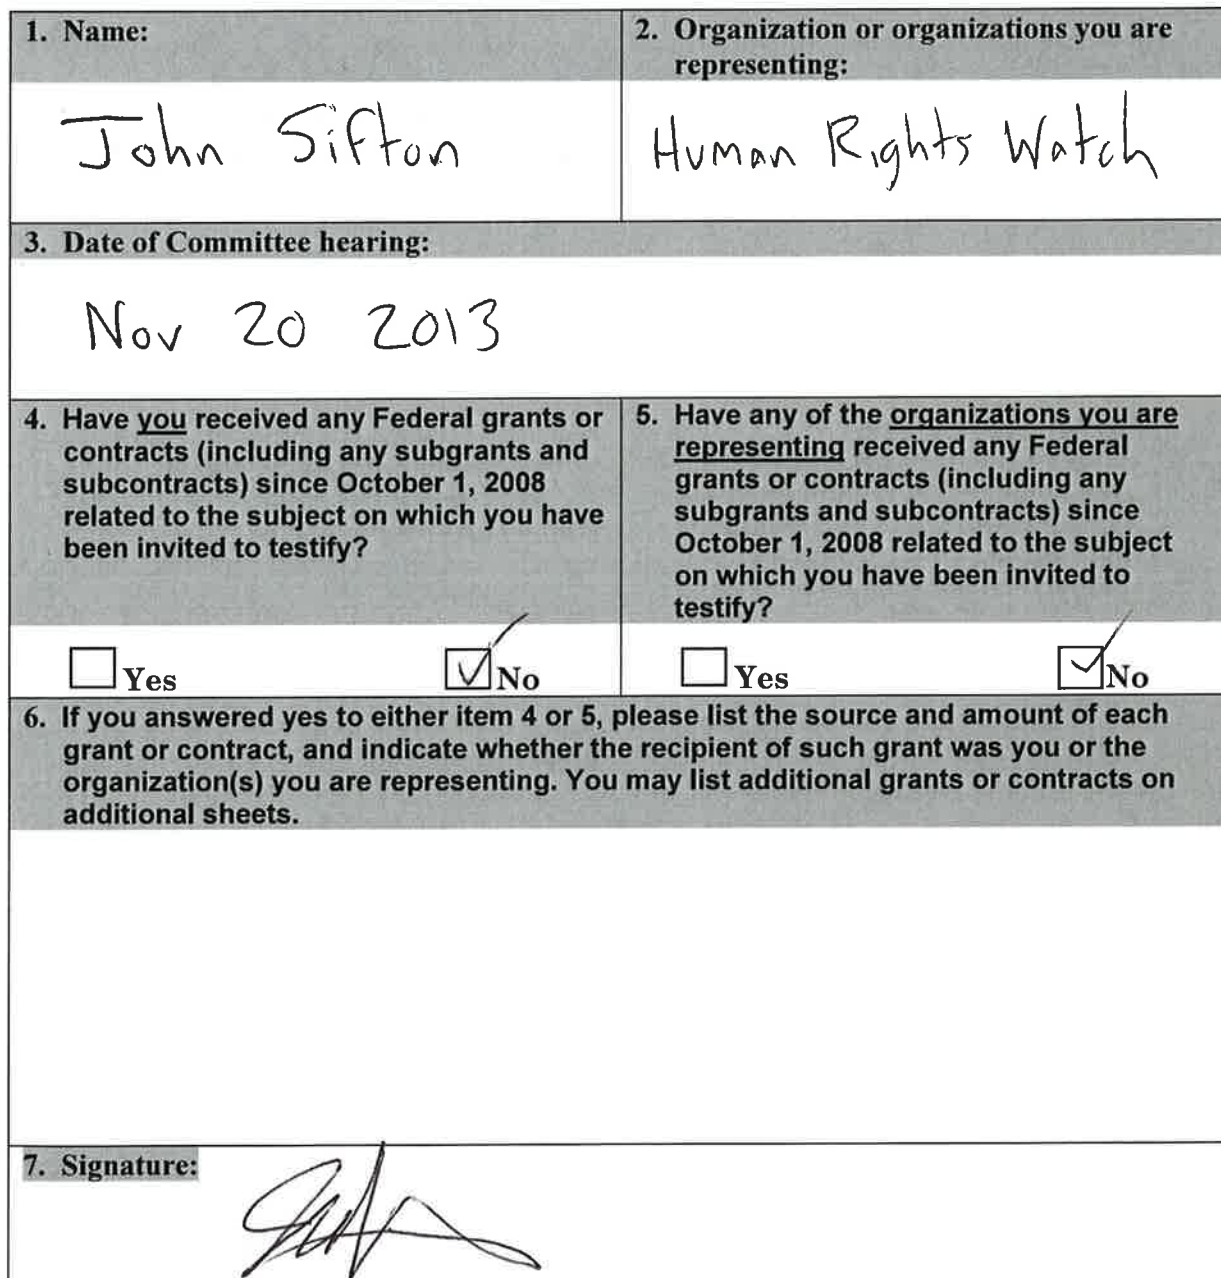 1. Name:
John Sifton
2. Organization or organizations you are
representing:
Human Rights Watch
3. Date of Committee hearing:
Nov 20 2013
4. Have you received any Federal grants or
contracts (including any subgrants and
subcontracts) since October 1, 2008
related to the subject on which you have
been invited to testify?
Yes
No
5. Have any of the organizations you are
representing received any Federal
grants or contracts (including any
subgrants and subcontracts) since
October 1, 2008 related to the subject
on which you have been invited to
testify?
Yes
No
6. If you answered yes to either item 4 or 5, please list the source and amount of each
grant or contract, and indicate whether the recipient of such grant was you or the
organization(s) you are representing. You may list additional grants or contracts on
additional sheets.
7. Signature: